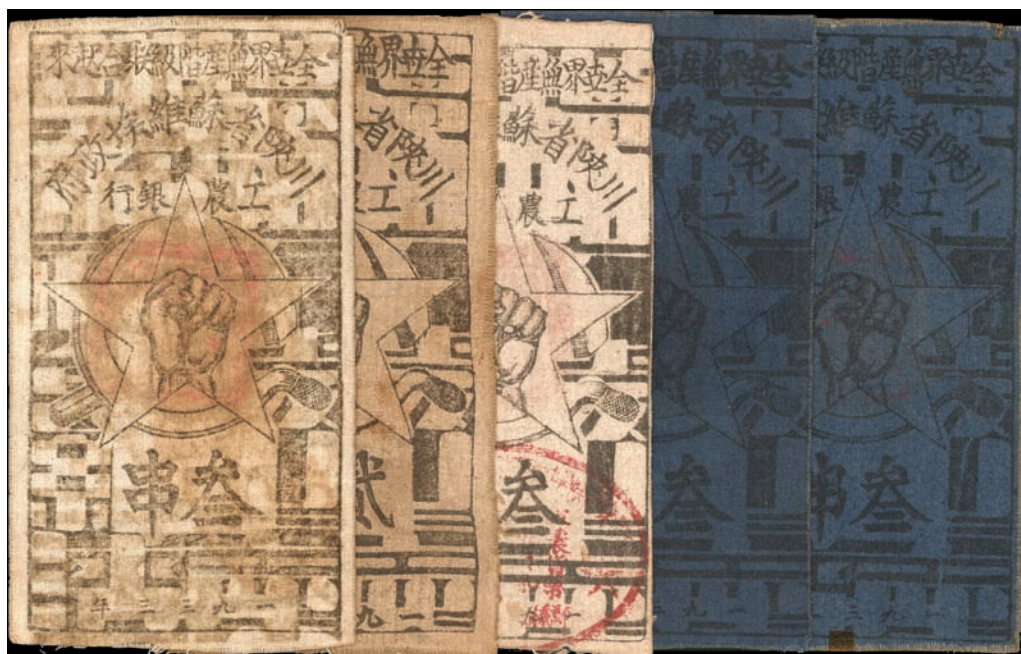 全世界無產階級聯合起來
川陝省蘇維埃政府
工農銀行
叁串
一九三三年
全世界無
川陝省
工
一九
全世界無產階
川陝省蘇
工農
叁
一
全世界無產階
川陝省蘇
工農
叁
九
全世界無產階級
川陝省蘇維
工農銀
叁串
九三